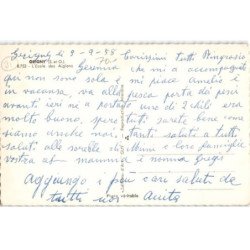 GRIGNY (S.-et-O.)
L'école des Aiglons
Grigny li 9-9-58 Carissimi tutti Pongrazio
Geromia che mi a accompagnato
qui non sono sola e mi piace Amelio e
in vacanza, va alla pesca porta dei pesi
avanti ieri ni a portato uno di 2 chili era
molto buono, spero tutti sarete bene come
siamo anche noi. Tanti saluti a tutti
saluti alle sorelle di e loro famiglie
vostra mamma e nonna
Aggiungo i più cari saluti da
tutti noi Anita